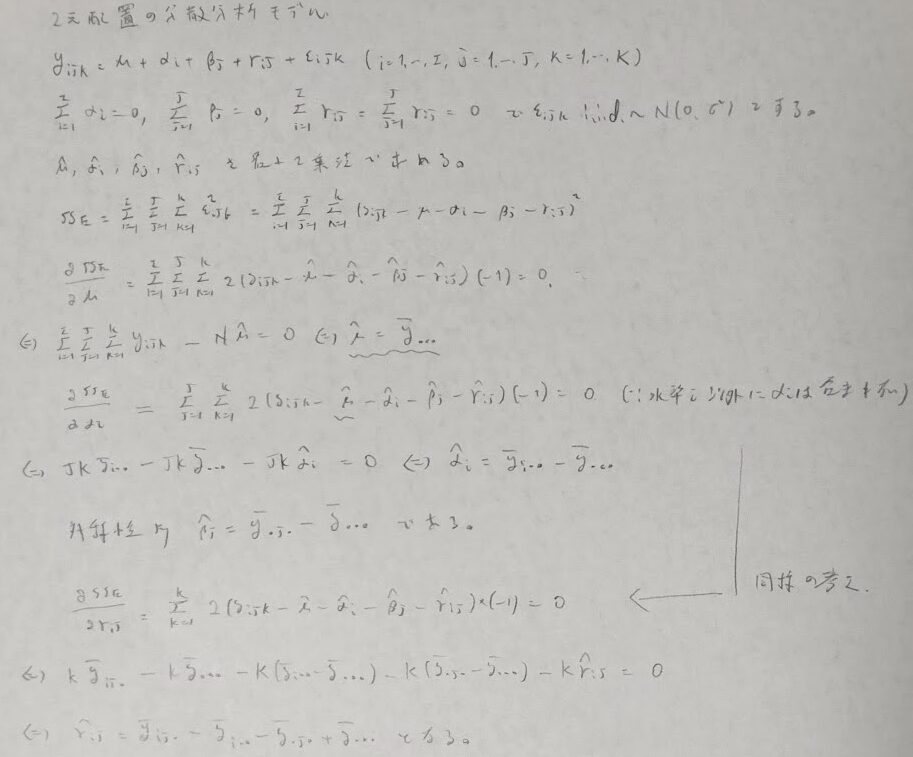 2元配置の分散分析モデル
y_ijk = μ + α_i + β_j + γ_ij + ε_ijk (i=1,‥,I, j=1,‥,J, k=1,‥,K)
Σ_{i=1}^{I} α_i = 0, Σ_{j=1}^{J} β_j = 0, Σ_{i=1}^{I} γ_ij = Σ_{j=1}^{J} γ_ij = 0 で ε_ijk i.i.d. ~ N(0, σ²) とする。
μ̂, α̂_i, β̂_j, γ̂_ij を最小2乗法で求める。
SS_E = Σ_{i=1}^{I} Σ_{j=1}^{J} Σ_{k=1}^{K} ε²_ijk = Σ_{i=1}^{I} Σ_{j=1}^{J} Σ_{k=1}^{K} (y_ijk − μ − α_i − β_j − γ_ij)²
∂SS_E/∂μ = Σ_{i=1}^{I} Σ_{j=1}^{J} Σ_{k=1}^{K} 2(y_ijk − μ̂ − α̂_i − β̂_j − γ̂_ij)(−1) = 0.
⇔ Σ_{i=1}^{I} Σ_{j=1}^{J} Σ_{k=1}^{K} y_ijk − Nμ̂ = 0 ⇔ μ̂ = ȳ...
∂SS_E/∂α_i = Σ_{j=1}^{J} Σ_{k=1}^{K} 2(y_ijk − μ̂ − α̂_i − β̂_j − γ̂_ij)(−1) = 0 (∵水準i以外にα_iは含まれない)
⇔ JKȳ_i.. − JKȳ... − JKα̂_i = 0 ⇔ α̂_i = ȳ_i.. − ȳ...
対称性より β̂_j = ȳ.j. − ȳ... である。
同様の考え.
∂SS_E/∂γ_ij = Σ_{k=1}^{K} 2(y_ijk − μ̂ − α̂_i − β̂_j − γ̂_ij)×(−1) = 0
⇔ Kȳ_ij. − Kȳ... − K(ȳ_i.. − ȳ...) − K(ȳ.j. − ȳ...) − Kγ̂_ij = 0
⇔ γ̂_ij = ȳ_ij. − ȳ_i.. − ȳ.j. + ȳ... である。